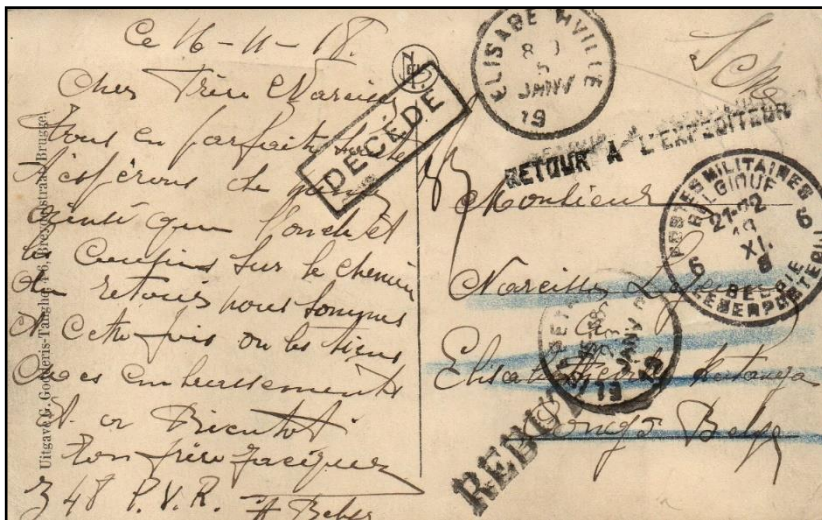 Ce 16-11-18.
Cher Frère Narcisse
Tous en parfaite
espérons de
que l'oncle et
Cousins sur le chemin
du retour nous sommes
et cette fois on les tiens
embrassements
A bientôt
Ton frère Jacques
Z 48 P.V.R. A Belge
Uitgave G. Godderis-Tanghe, 4-6, Breydelstraat, Brugge.
DÉCÉDÉ
ELISABETHVILLE
8-9
5
JANV
19
S.M.
RETOUR A L'EXPÉDITEUR
POSTES MILITAIRES
BELGIQUE
21-22
XI.
6 6
BELGIË
LEGERPOSTERIJ
Monsieur
Narcisse
JANV
19 19
Elisabethville Katanga
Congo Belge
REBUT